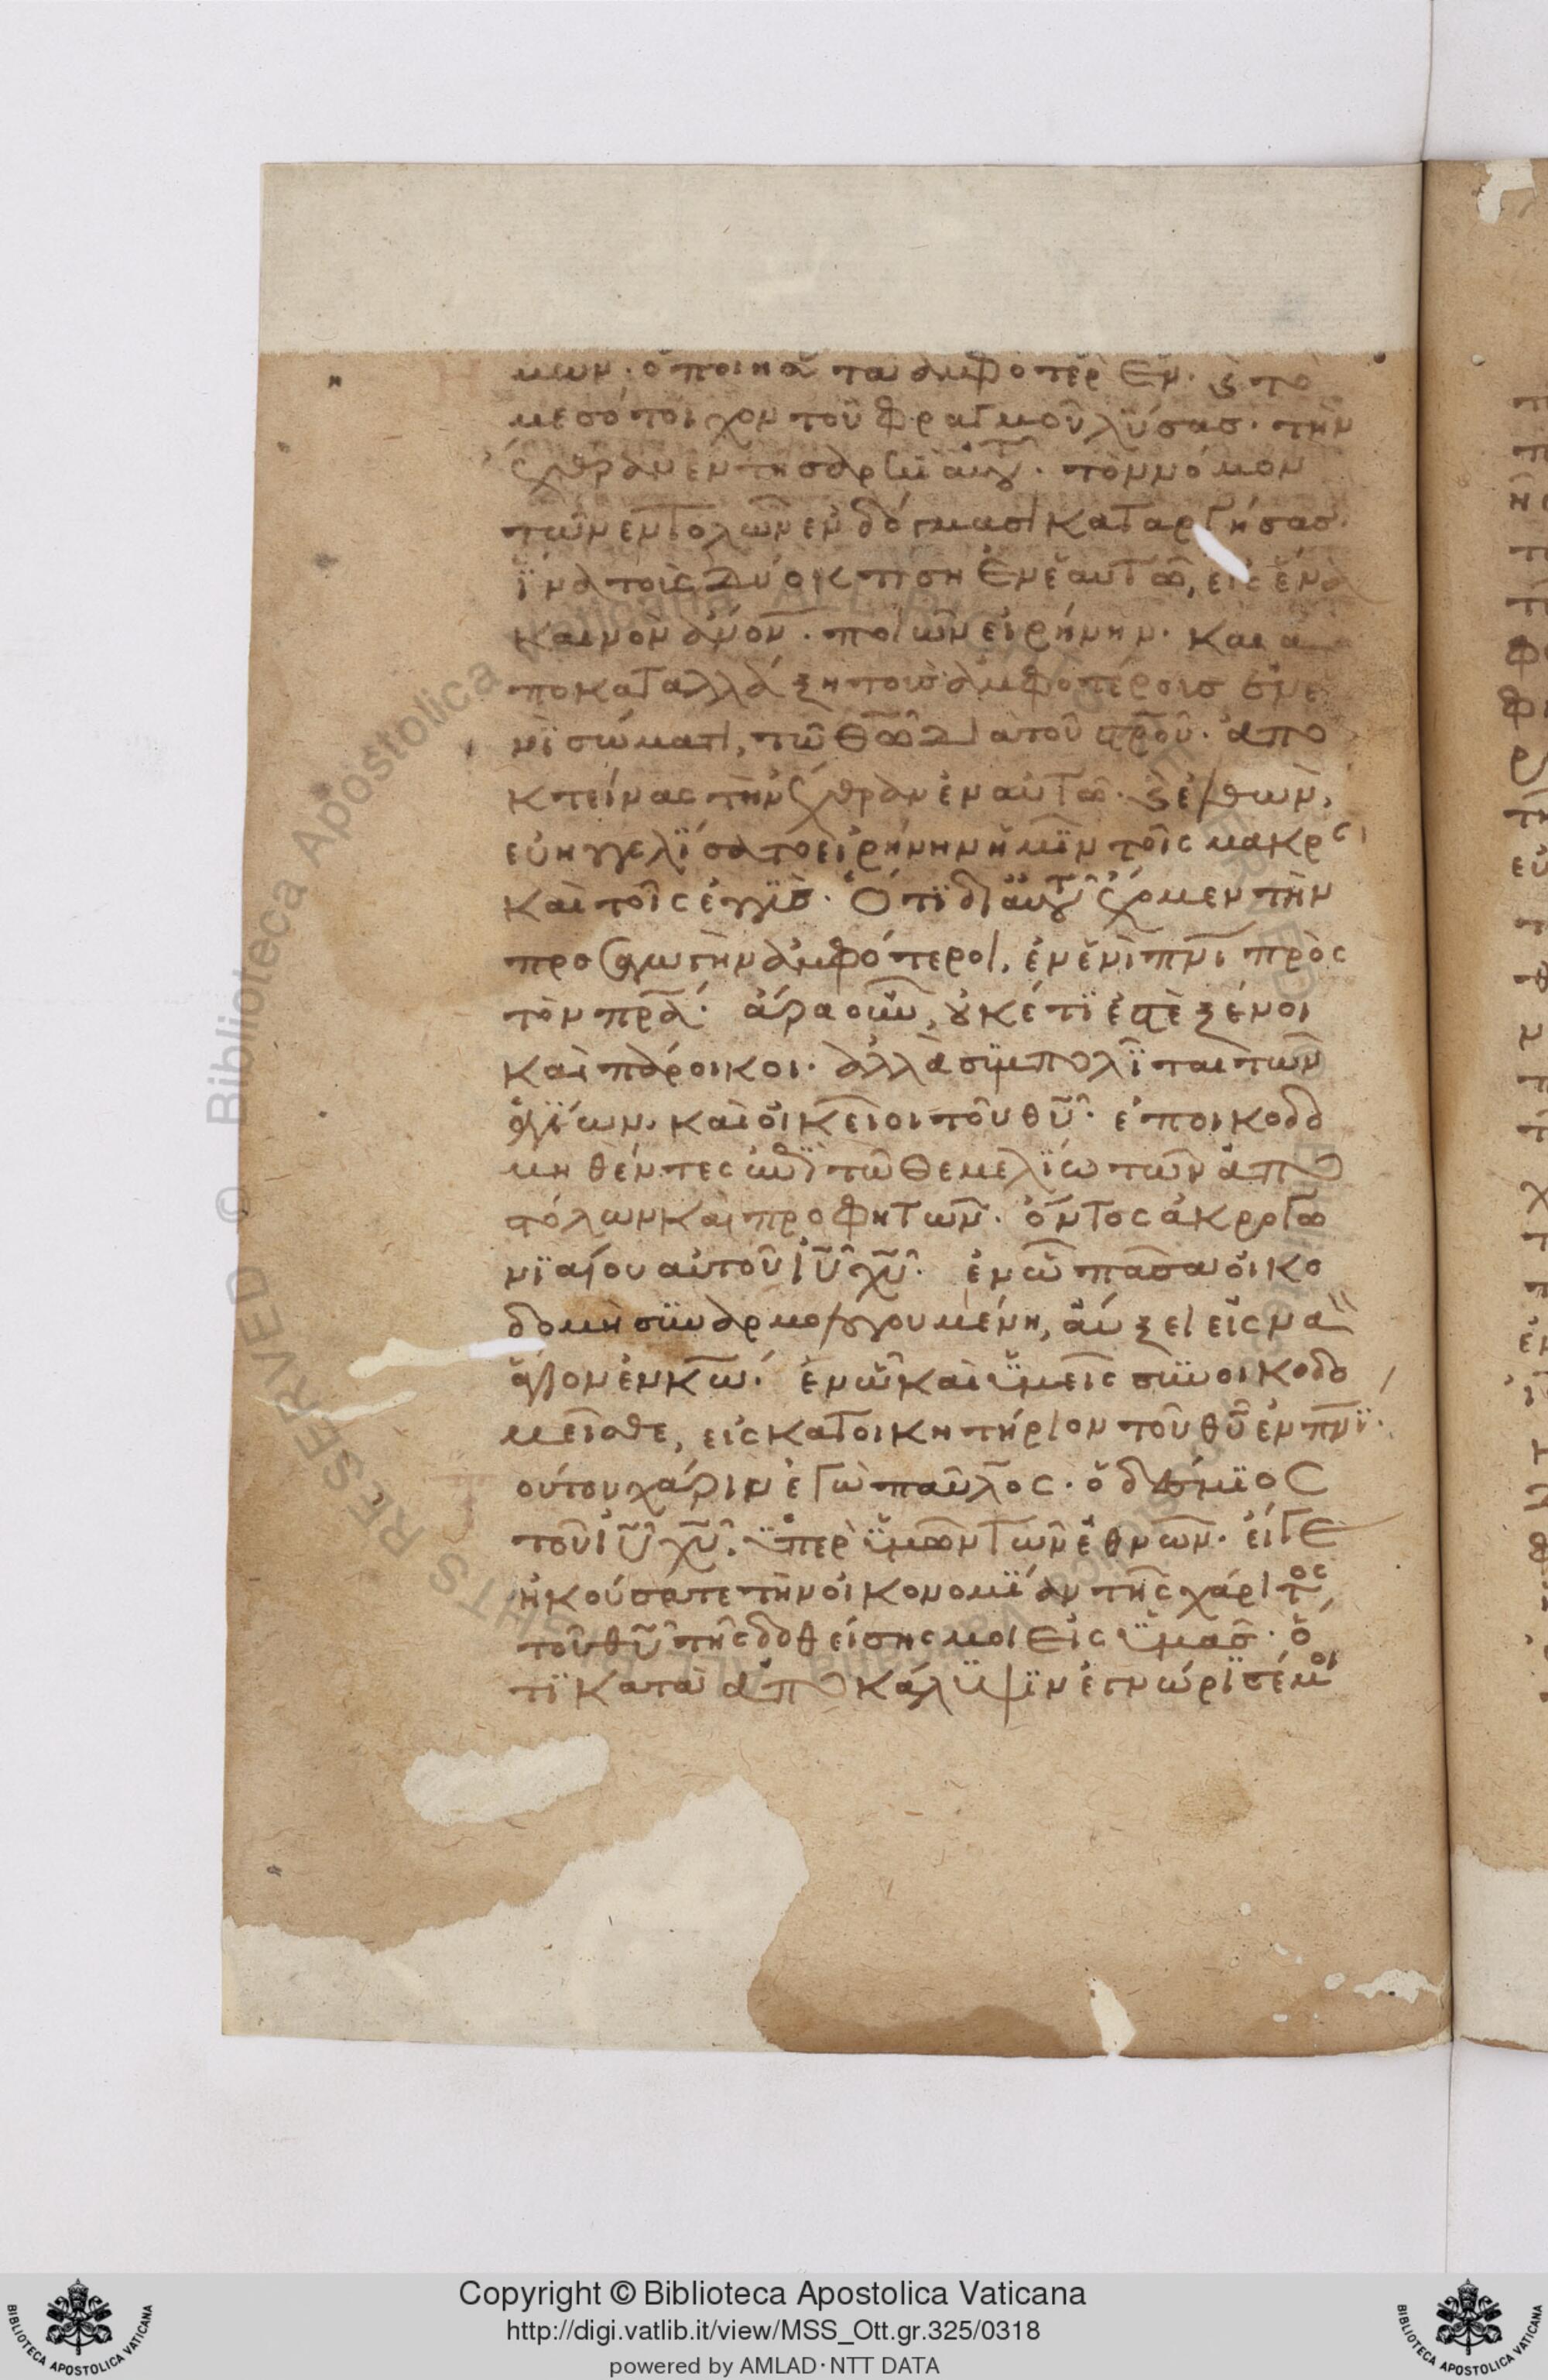 μων· ὁ ποιήσας τὰ ἀμφότερα ἕν· καὶ τὸ
μεσότοιχον τοῦ φραγμοῦ λύσας· τὴν
ἔχθραν ἐν τῇ σαρκὶ αὐτοῦ· τὸν νόμον
τῶν ἐντολῶν ἐν δόγμασι καταργήσας·
ἵνα τοὺς δύο κτίση ἐν ἑαυτῶ, εἰς ἕνα
καινὸν ἄνον· ποιῶν εἰρήνην· και ἀ
ποκαταλλάξη τοὺς ἀμφοτέρους ἐν ἑ
νὶ σώματι, τῶ θῶ διὰ τοῦ στροῦ· ἀπο
κτείνας τὴν ἔχθραν ἐν αὐτῶ· καὶ ἐλθὼν,
εὐηγγελίσατο εἰρήνην ἡμῖν τοῖς μακρὰν
καὶ τοῖς ἐγγὺς· Ὅτι δι αὐτοῦ ἔχομεν τὴν
προσαγωγὴν ἀμφότεροι, ἐν ἑνὶ πνι πρὸς
τὸν πρα· ἄρα οὖν, οὐκέτι ἐστὲ ξένοι
καὶ πάροικοι· ἀλλὰ συμπολῖται τῶν
ἁγίων· καὶ οἰκεῖοι τοῦ θυ· ἐποικοδο
μηθέντες ἐπὶ τῶ θεμελίω τῶν ἀπο
στόλων καὶ προφητῶν· ὄντος ἀκρογω
νιαίου αὐτοῦ ιυ χυ· ἐν ὧ πᾶσα οἰκο
δομὴ συναρμολογουμένη, αὔξει εἰς να
ὸν ἅγιον ἐν κω· ἐν ὧ καὶ ὑμεῖς συνοικοδο
μεῖσθε, εἰς κατοικητήριον τοῦ θυ ἐν πνι·
ούτου χάριν ἐγὼ παῦλος· ὁ δέσμιος
τοῦ ιυ χυ· ὑπὲρ ὑμῶν τῶν ἐθνῶν· εἴγε
ἠκούσατε τὴν οἰκονομίαν τῆς χάριτος
τοῦ θυ τῆς δοθείσης μοι εἰς ὑμᾶς· ὅ
τι κατὰ ἀποκάλυψιν ἐγνώρισέ μοι
Copyright © Biblioteca Apostolica Vaticana
http://digi.vatlib.it/view/MSS_Ott.gr.325/0318
powered by AMLAD·NTT DATA